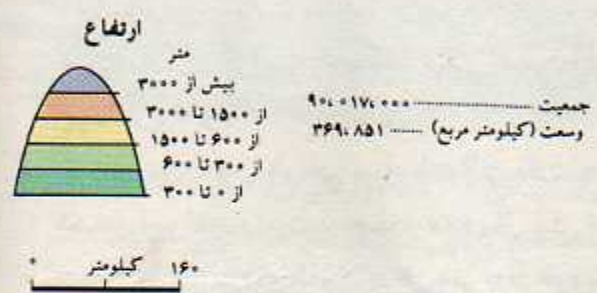 ارتفاع
متر
بیش از ۳۰۰۰
از ۱۵۰۰ تا ۳۰۰۰
از ۶۰۰ تا ۱۵۰۰
از ۳۰۰ تا ۶۰۰
از ۰ تا ۳۰۰
جمعیت ............ ۹۰،۰۱۷،۰۰۰
وسعت (کیلومتر مربع) ...... ۳۶۹،۸۵۱
۰ کیلومتر ۱۶۰